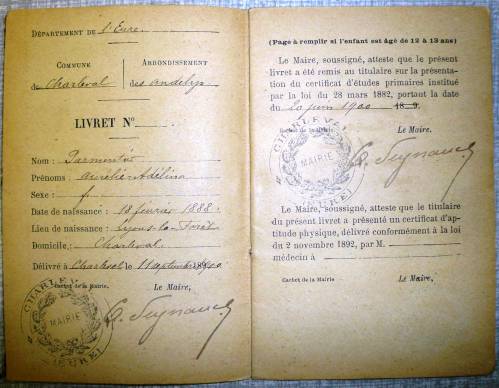 DÉPARTEMENT DE l'Eure
COMMUNE
de Charleval
ARRONDISSEMENT
des andelys
LIVRET No
Nom : Parmentier
Prénoms : Aurélie Adélina
Sexe : f
Date de naissance : 18 février 1888
Lieu de naissance : Lyons-la-Forêt
Domicile : Charleval
Délivré à Charleval le 11 septembre 1900
Cachet de la Mairie.
Le Maire,
CHARLEVAL
MAIRIE
(EURE)
(Page à remplir si l'enfant est âgé de 12 à 13 ans)
Le Maire, soussigné, atteste que le présent
livret a été remis au titulaire sur la présenta-
tion du certificat d'études primaires institué
par la loi du 28 mars 1882, portant la date
du 20 juin 1900
Cachet de la Mairie.
Le Maire,
CHARLEVAL
MAIRIE
(EURE)
Le Maire, soussigné, atteste que le titulaire
du présent livret a présenté un certificat d'ap-
titude physique, délivré conformément à la loi
du 2 novembre 1892, par M.
médecin à
Cachet de la Mairie
Le Maire,